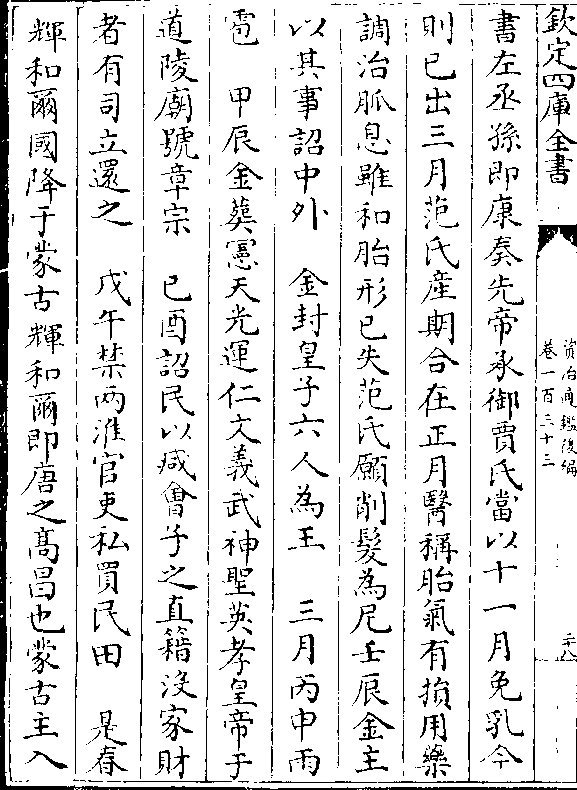 欽定四庫全書
資治通鑑後編
卷一百三十三
二十八
書左丞孫即康奏先帝承御賈氏當以十一月免乳今
則已出三月范氏產期合在正月醫稱胎氣有損用藥
調治脈息雖和胎形已失范氏願削髮為尼壬辰金主
以其事詔中外　金封皇子六人為王　三月丙申雨
雹　甲辰金葬憲天光運仁文義武神聖英孝皇帝于
道陵廟號章宗　已酉詔民以咸㑹子之直籍沒家財
者有司立還之　戊午禁兩淮官吏私買民田　是春
輝和爾國降于蒙古輝和爾即唐之髙昌也蒙古主入